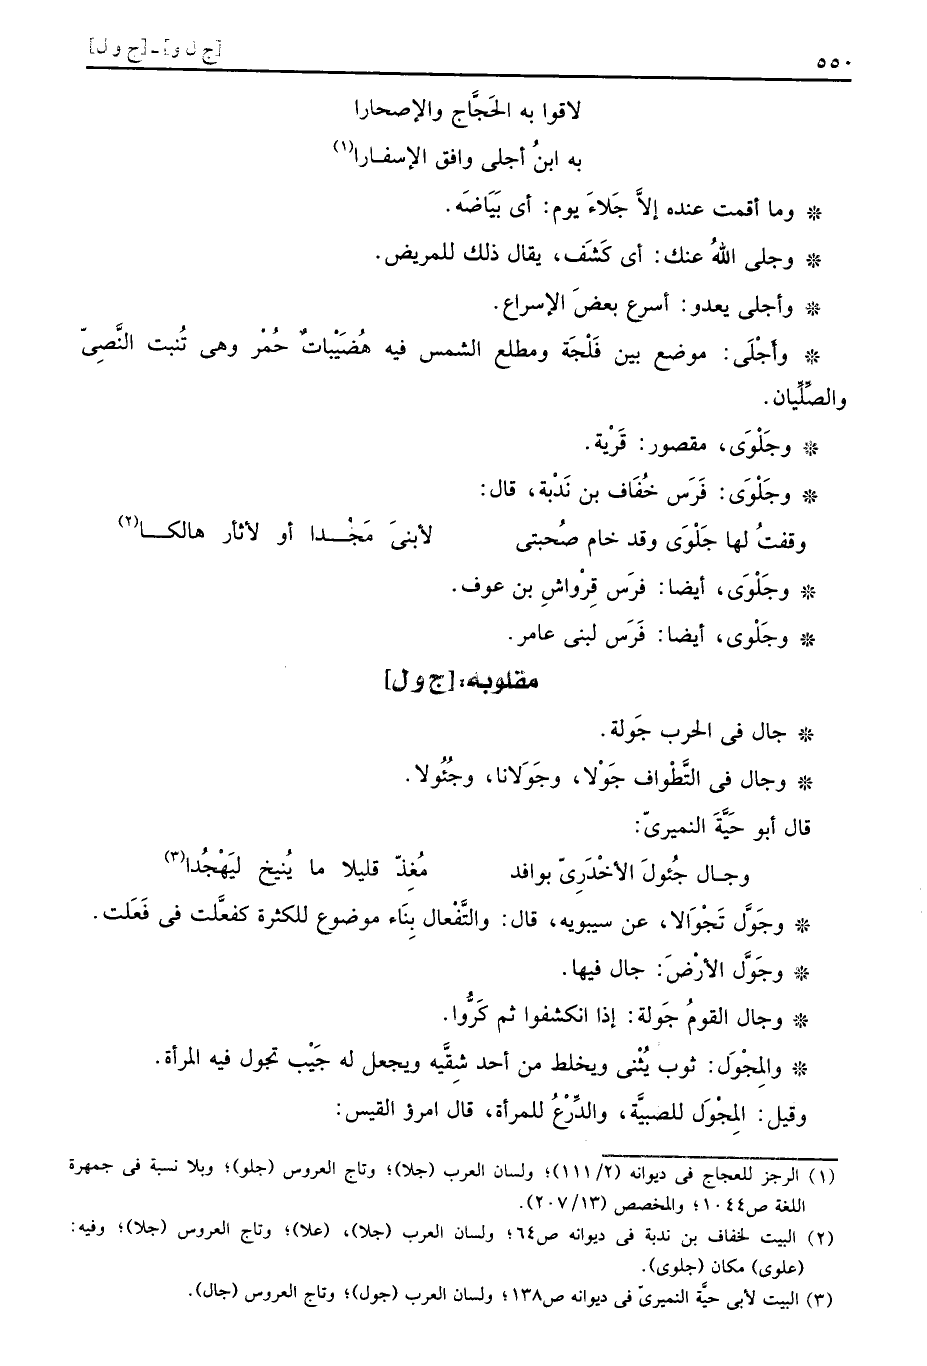 ٥٥٠
[ج ل و] ـ [ج و ل]
لاقوا به الحَجَّاج والإصحارا
به ابنُ أجلى وافق الإسفـارا(١)
❊ وما أقمت عنده إلاَّ جَلاءَ يوم: أى بَيَاضَه.
❊ وجلى اللهُ عنك: أى كَشَف، يقال ذلك للمريض.
❊ وأجلى يعدو: أسرع بعضَ الإسراع.
❊ وأَجْلَى: موضع بين فَلْجَة ومطلع الشمس فيه هُضَيْباتٌ حُمْر وهى تُنبت النَّصِىّ
والصِّلِّيان.
❊ وجَلْوَى، مقصور: قَرْية.
❊ وجَلْوَى: فَرَس خُفَاف بن نَدْبة، قال:
وقفتُ لها جَلْوَى وقد خام صُحبتى لأبنىَ مَجْـــدا أو لأثأر هالكـــا(٢)
❊ وجَلْوَى، أيضا: فرَس قِرْواشِ بن عوف.
❊ وجَلْوى، أيضا: فَرَس لبنى عامر.
مقلوبه: [ج و ل]
❊ جال فى الحرب جَولة.
❊ وجال فى التَّطْواف جَوْلا، وجَوَلانا، وجُئُولا.
قال أبو حَيَّةَ النميرىّ:
وجـال جُئولَ الأخْدَرِىّ بوافد مُغِذّ قليلا ما يُنيخ ليَهْجُدا(٣)
❊ وجَوَّل تَجْوَالا، عن سيبويه، قال: والتَّفْعال بِنَاء موضوع للكثرة كفعَّلت فى فَعَلت.
❊ وجَوَّل الأرْضَ: جال فيها.
❊ وجال القومُ جَولة: إذا انكشفوا ثم كَرُّوا.
❊ والمِجْوَل: ثوب يُثْنى ويخلط من أحد شِقَّيه ويجعل له جَيْب تجول فيه المرأة.
وقيل: المِجْوَل للصبيَّة، والدِّرْعُ للمرأة، قال امرؤ القيس:
(١) الرجز للعجاج فى ديوانه (٢/١١١)؛ ولسان العرب (جلا)؛ وتاج العروس (جلو)؛ وبلا نسبة فى جمهرة
اللغة ص١٠٤٤؛ والمخصص (١٣/٢٠٧).
(٢) البيت لخفاف بن ندبة فى ديوانه ص٦٤؛ ولسان العرب (جلا)، (علا)؛ وتاج العروس (جلا)؛ وفيه:
(علوى) مكان (جلوى).
(٣) البيت لأبى حيَّة النميرىّ فى ديوانه ص١٣٨؛ ولسان العرب (جول)؛ وتاج العروس (جال).